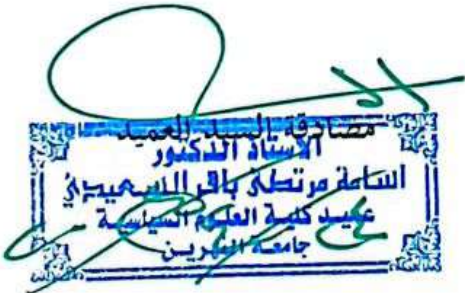 مصادقة السيد العميد
الاستاذ الدكتور
اسامة مرتضى باقر السعيدي
عميد كلية العلوم السياسية
جامعة النهرين